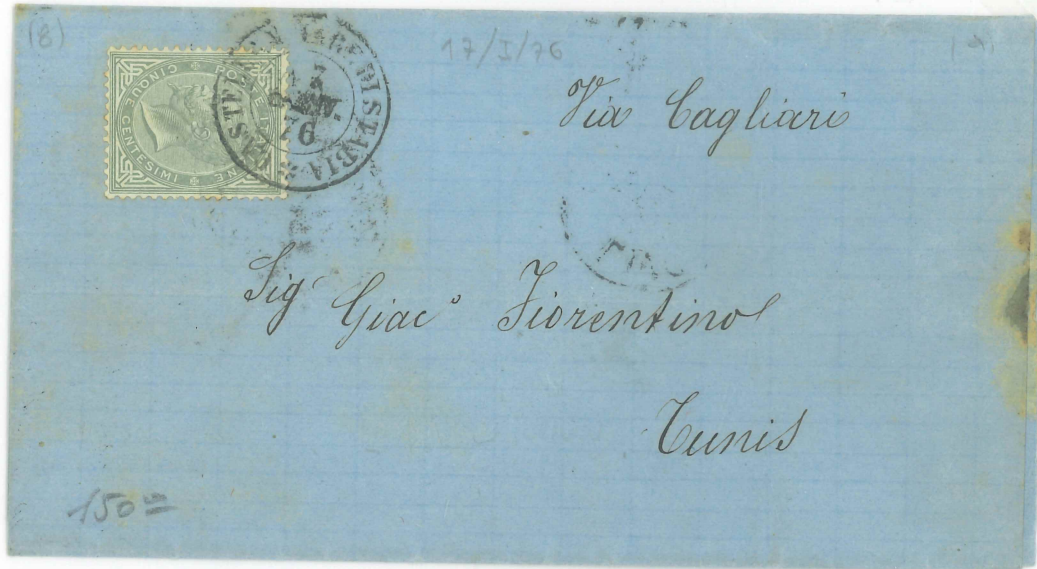 (8)
17/I/76
POSTE ITALIANE
CINQUE CENTESIMI
CASTELLAMMARE DI STABIA
76
Via Cagliari
Sigʳ Giacº Fiorentino
Tunis
150